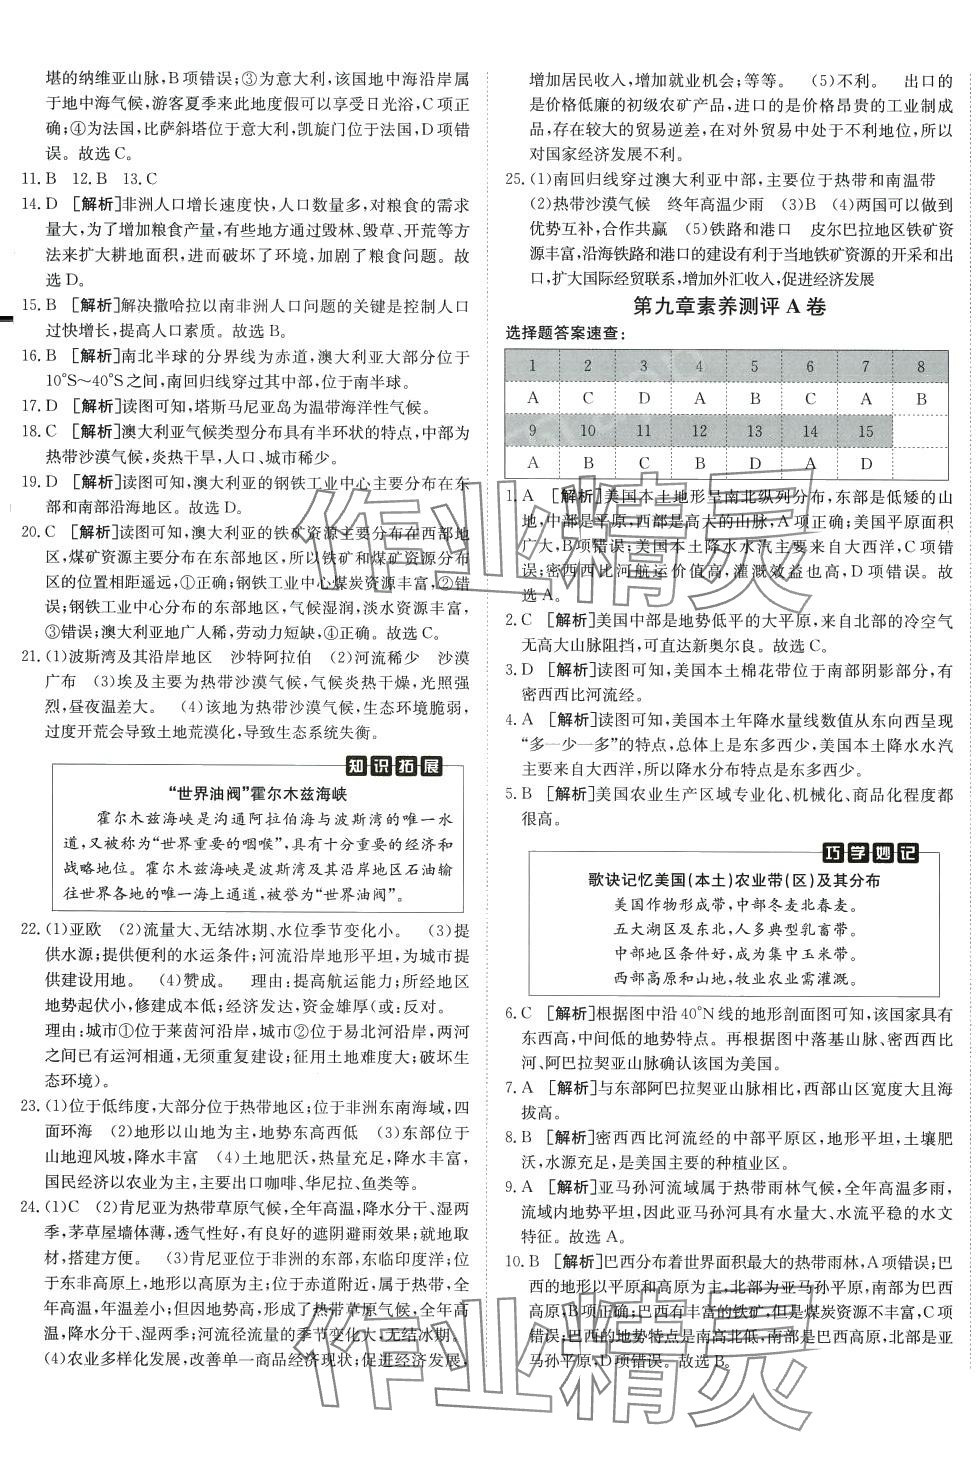 堪的纳维亚山脉,B项错误;③为意大利,该国地中海沿岸属
于地中海气候,游客夏季来此地度假可以享受日光浴,C项正
确;④为法国,比萨斜塔位于意大利,凯旋门位于法国,D项错
误。故选C。
11. B 12. B 13. C
14. D [解析]非洲人口增长速度快,人口数量多,对粮食的需求
量大,为了增加粮食产量,有些地方通过毁林、毁草、开荒等方
法来扩大耕地面积,进而破坏了环境,加剧了粮食问题。故
选D。
15. B [解析]解决撒哈拉以南非洲人口问题的关键是控制人口
过快增长,提高人口素质。故选B。
16. B [解析]南北半球的分界线为赤道,澳大利亚大部分位于
10°S～40°S之间,南回归线穿过其中部,位于南半球。
17. D [解析]读图可知,塔斯马尼亚岛为温带海洋性气候。
18. C [解析]澳大利亚气候类型分布具有半环状的特点,中部为
热带沙漠气候,炎热干旱,人口、城市稀少。
19. D [解析]读图可知,澳大利亚的钢铁工业中心主要分布在东
部和南部沿海地区。故选D。
20. C [解析]读图可知,澳大利亚的铁矿资源主要分布在西部地
区,煤矿资源主要分布在东部地区,所以铁矿和煤矿资源分布
区的位置相距遥远,①正确;钢铁工业中心煤炭资源丰富,②错
误;钢铁工业中心分布的东部地区,气候湿润,淡水资源丰富,
③错误;澳大利亚地广人稀,劳动力短缺,④正确。故选C。
21. (1)波斯湾及其沿岸地区 沙特阿拉伯 (2)河流稀少 沙漠
广布 (3)埃及主要为热带沙漠气候,气候炎热干燥,光照强
烈,昼夜温差大。 (4)该地为热带沙漠气候,生态环境脆弱,
过度开荒会导致土地荒漠化,导致生态系统失衡。
知识拓展
“世界油阀”霍尔木兹海峡
霍尔木兹海峡是沟通阿拉伯海与波斯湾的唯一水
道,又被称为“世界重要的咽喉”,具有十分重要的经济和
战略地位。霍尔木兹海峡是波斯湾及其沿岸地区石油输
往世界各地的唯一海上通道,被誉为“世界油阀”。
22. (1)亚欧 (2)流量大、无结冰期、水位季节变化小。 (3)提
供水源;提供便利的水运条件;河流沿岸地形平坦,为城市提
供建设用地。 (4)赞成。 理由:提高航运能力;所经地区
地势起伏小,修建成本低;经济发达,资金雄厚(或:反对。
理由:城市①位于莱茵河沿岸,城市②位于易北河沿岸,两河
之间已有运河相通,无须重复建设;征用土地难度大;破坏生
态环境)。
23. (1)位于低纬度,大部分位于热带地区;位于非洲东南海域,四
面环海 (2)地形以山地为主,地势东高西低 (3)东部位于
山地迎风坡,降水丰富 (4)土地肥沃、热量充足,降水充足,
国民经济以农业为主;主要出口咖啡、华尼拉、鱼类等。
24. (1)C (2)肯尼亚为热带草原气候,全年高温,降水分干、湿两
季,茅草屋墙体薄,透气性好,有良好的遮阴避雨效果;就地取
材,搭建方便。 (3)肯尼亚位于非洲的东部,东临印度洋;位
于东非高原上,地形以高原为主;位于赤道附近,属于热带,全
年高温,年温差小;但因地势高,形成了热带草原气候,全年高
温,降水分干、湿两季;河流径流量的季节变化大,无结冰期。
(4)农业多样化发展,改善单一商品经济现状;促进经济发展,
增加居民收入,增加就业机会;等等。 (5)不利。 出口的
是价格低廉的初级农矿产品,进口的是价格昂贵的工业制成
品,存在较大的贸易逆差,在对外贸易中处于不利地位,所以
对国家经济发展不利。
25. (1)南回归线穿过澳大利亚中部,主要位于热带和南温带
(2)热带沙漠气候 终年高温少雨 (3)B (4)两国可以做到
优势互补,合作共赢 (5)铁路和港口 皮尔巴拉地区铁矿资
源丰富,沿海铁路和港口的建设有利于当地铁矿资源的开采和出
口,扩大国际经贸联系,增加外汇收入,促进经济发展
第九章素养测评 A 卷
选择题答案速查:
1 2 3 4 5 6 7 8
A C D A B C A B
9 10 11 12 13 14 15
A B C B D A D
1. A [解析]美国本土地形呈南北纵列分布,东部是低矮的山
地,中部是平原,西部是高大的山脉,A项正确;美国平原面积
广大,B项错误;美国本土降水水汽主要来自大西洋,C项错
误;密西西比河航运价值高,灌溉效益也高,D项错误。故
选A。
2. C [解析]美国中部是地势低平的大平原,来自北部的冷空气
无高大山脉阻挡,可直达新奥尔良。故选C。
3. D [解析]读图可知,美国本土棉花带位于南部阴影部分,有
密西西比河流经。
4. A [解析]读图可知,美国本土年降水量线数值从东向西呈现
“多—少—多”的特点,总体上是东多西少,美国本土降水水汽
主要来自大西洋,所以降水分布特点是东多西少。
5. B [解析]美国农业生产区域专业化、机械化、商品化程度都
很高。
巧学妙记
歌诀记忆美国(本土)农业带(区)及其分布
美国作物形成带,中部冬麦北春麦。
五大湖区及东北,人多典型乳畜带。
中部地区条件好,成为集中玉米带。
西部高原和山地,牧业农业需灌溉。
6. C [解析]根据图中沿40°N线的地形剖面图可知,该国家具有
东西高,中部低的地势特点。再根据图中落基山脉、密西西比
河、阿巴拉契亚山脉确认该国为美国。
7. A [解析]与东部阿巴拉契亚山脉相比,西部山区宽度大且海
拔高。
8. B [解析]密西西比河流经的中部平原区,地形平坦,土壤肥
沃,水源充足,是美国主要的种植业区。
9. A [解析]亚马孙河流域属于热带雨林气候,全年高温多雨,
流域内地势平坦,因此亚马孙河具有水量大、水流平稳的水文
特征。故选A。
10. B [解析]巴西分布着世界面积最大的热带雨林,A项错误;巴
西的地形以平原和高原为主,北部为亚马孙平原,南部为巴西
高原,B项正确;巴西有丰富的铁矿,但是煤炭资源不丰富,C项
错误;巴西的地势特点是南高北低,南部是巴西高原,北部是亚
马孙平原,D项错误。故选B。
作业精灵
作业精灵